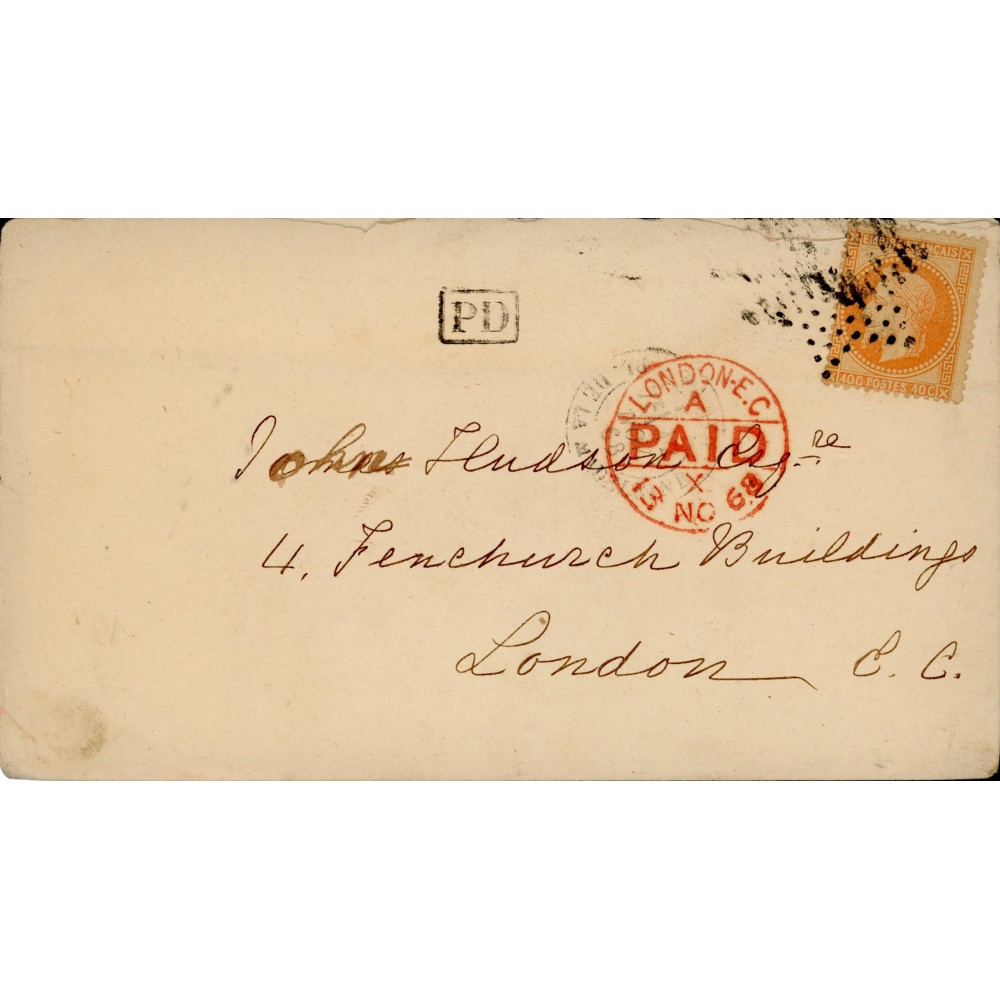 EMPIRE FRANCAIS
40C POSTES 40C
PD
PL. DE LA
LONDON-E.C
A
PAID
X
13 NO 68
John Hudson Esqre
4, Fenchurch Buildings
London E. C.